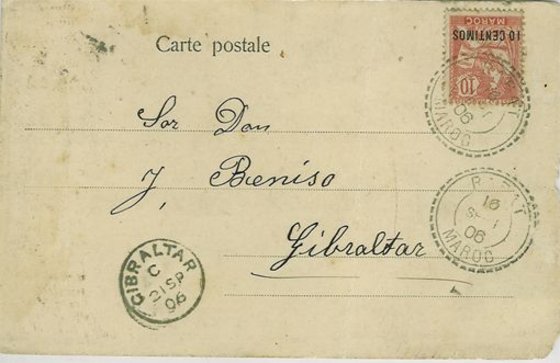 Carte postale
MAROC
10 CENTIMOS
10
RABAT
06
MAROC
Sor Don
J. Beniso
Gibraltar
RABAT
16
06
MAROC
GIBRALTAR
C
21 SP
06